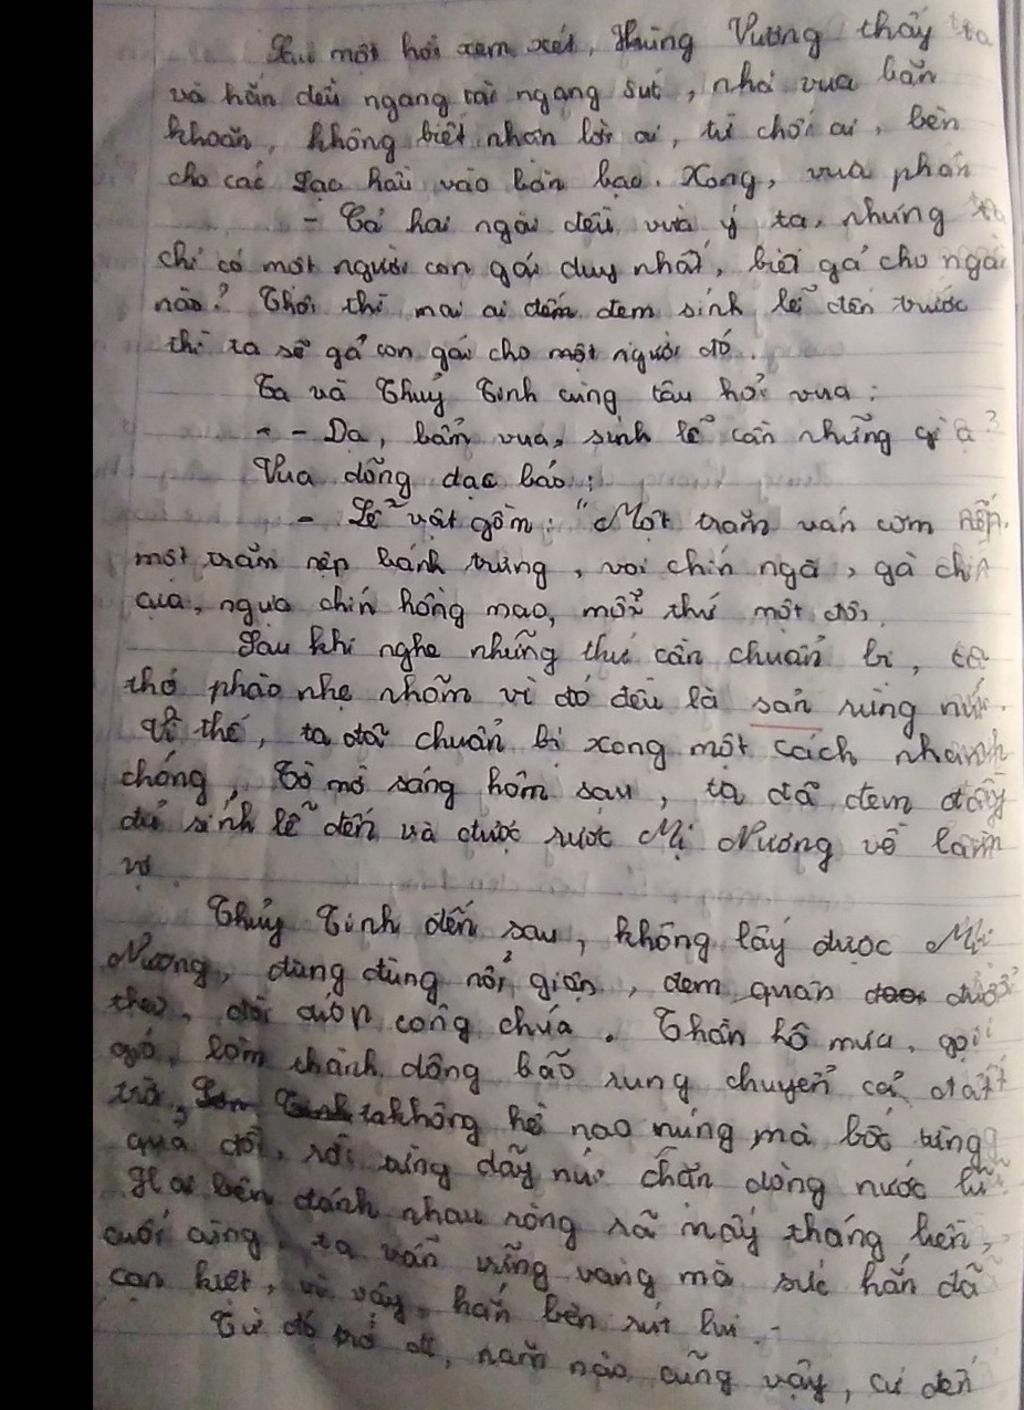 Sau một hồi xem xét, Hùng Vương thấy ta
và hắn đều ngang tài ngang sức, nhà vua băn
khoăn, không biết nhận lời ai, từ chối ai, bèn
cho các Lạc hầu vào bàn bạc. Xong, vua phán
- Cả hai ngài đều vừa ý ta, nhưng ta
chỉ có một người con gái duy nhất, biết gả cho ngài
nào? Thôi thì mai ai đếm đem sính lễ đến trước
thì ta sẽ gả con gái cho một người đó.
Ta và Thuỷ Tinh cùng tâu hỏi vua:
- - Dạ, bẩm vua, sính lễ cần những gì ạ?
Vua dõng dạc bảo:
- Lễ vật gồm: "Một trăm ván cơm nếp,
một trăm nệp bánh trưng, voi chín ngà, gà chín
cựa, ngựa chín hồng mao, mỗi thứ một đôi.
Sau khi nghe những thứ cần chuẩn bị, ta
thở phào nhẹ nhõm vì đó đều là sản rừng núi.
Vì thế, ta đã chuẩn bị xong một cách nhanh
chóng, Tờ mờ sáng hôm sau, ta đã đem đầy
đủ sính lễ đến và được rước Mị Nương về làm
vợ.
Thủy Tinh đến sau, không lấy được Mị
Nương, đùng đùng nổi giận, đem quân đuổi
theo, đòi cướp công chúa. Thần hô mưa, gọi
gió, làm thành dông bão rung chuyển cả đất
trời, ta không hề nao núng mà bốc từng
quả đồi, rời từng dãy núi chắn dòng nước lũ
Hai bên đánh nhau ròng rã mấy tháng liền,
cuối cùng, ta vẫn vững vàng mà sức hắn đã
cạn kiệt, vì vậy, hắn bèn rút lui.
Từ đó trở đi, năm nào cũng vậy, cứ đến